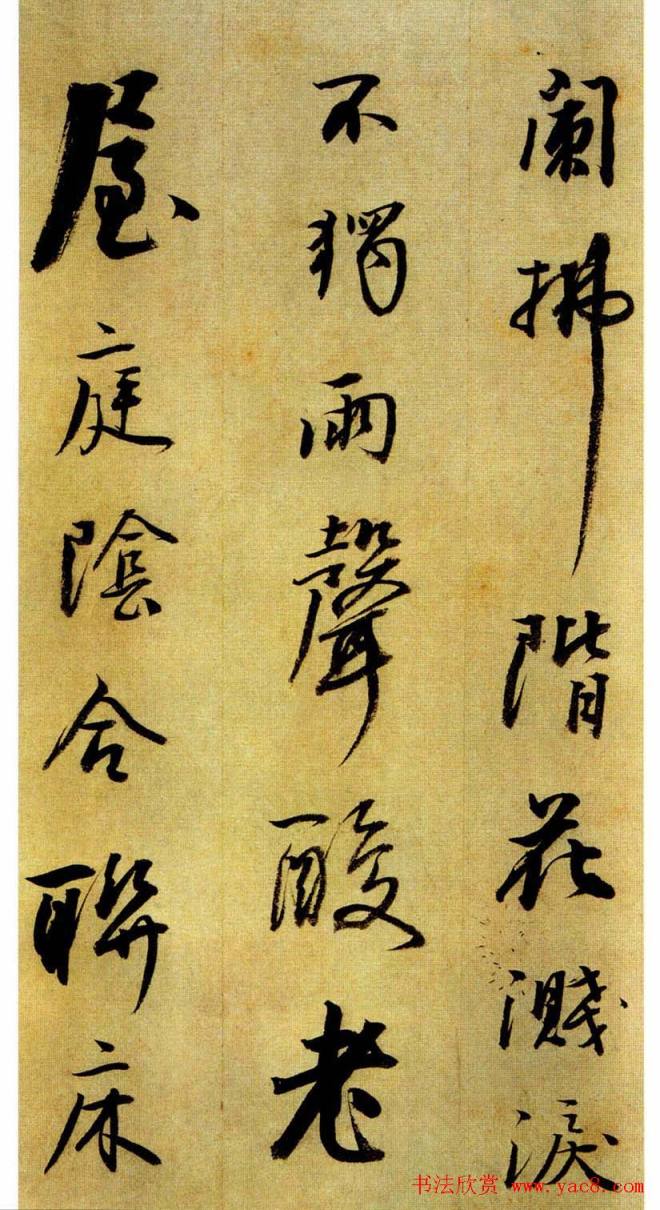 闌拂階花濺淚
不獨雨聲酸老
屋庭陰合聯床
书法欣赏 www.yac8.com